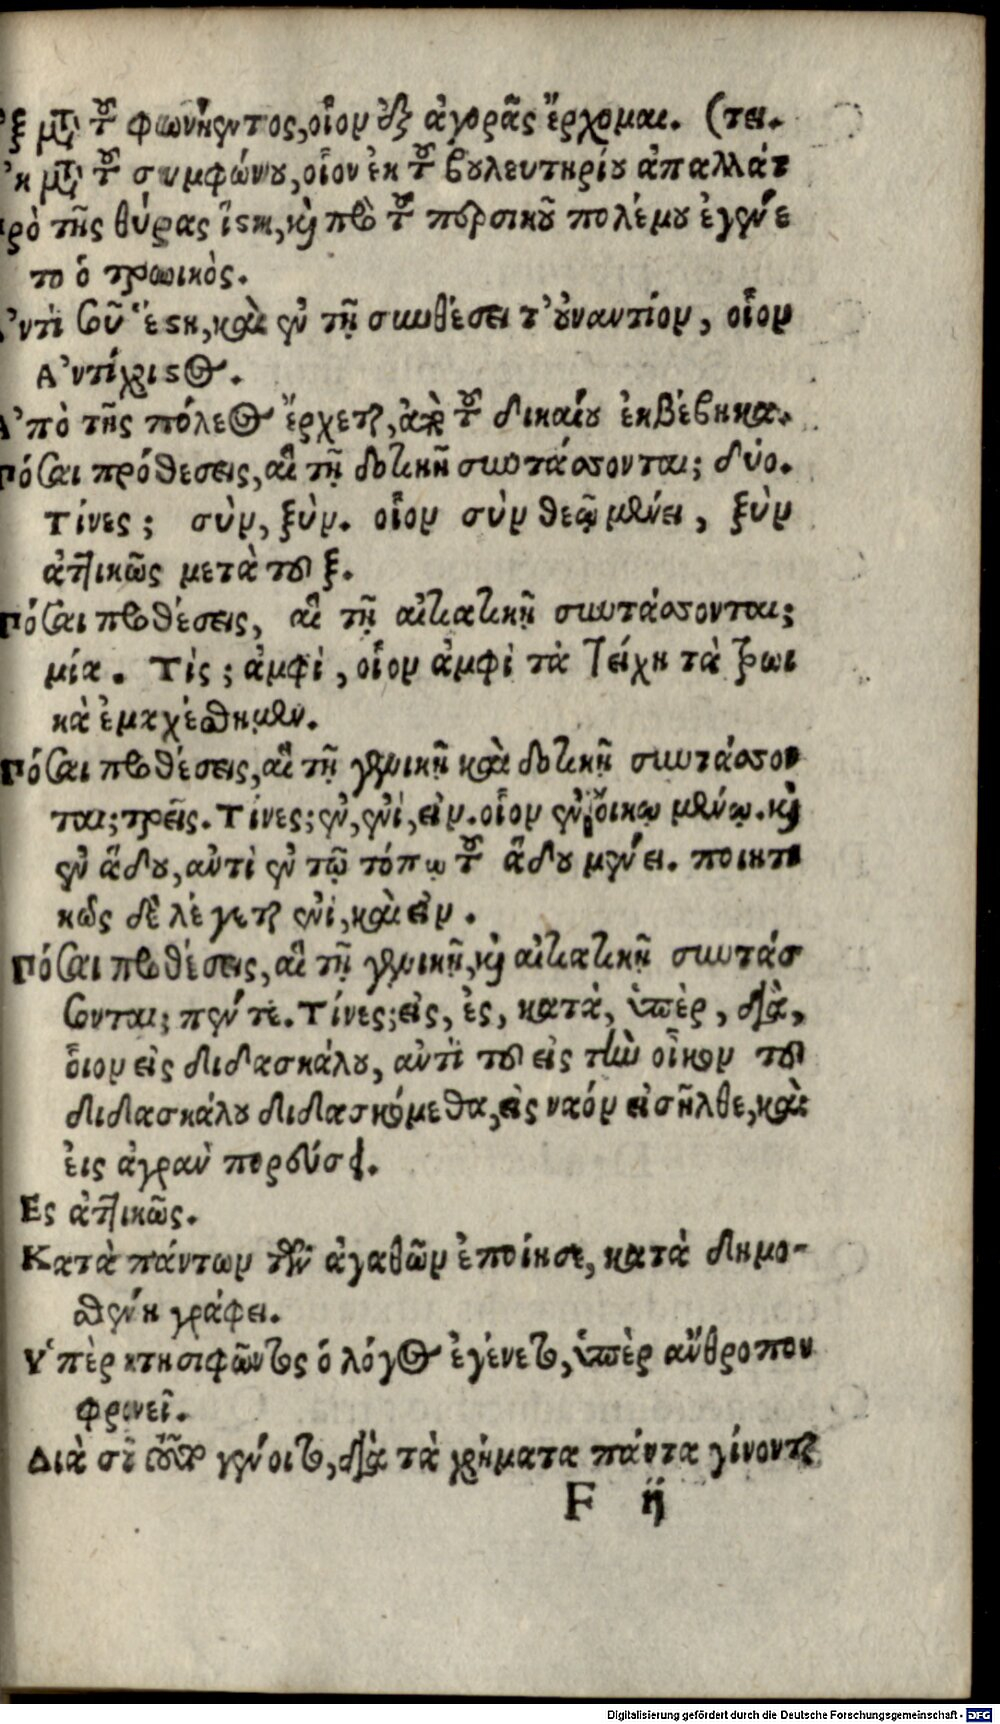 ξ μτ͂ τ͂ φωνήεντος, οἷον ἐξ ἀγορᾶς ἔρχομαι. (τει.
κ μτ͂ τ͂ συμφώνου, οἷον ἐκ τ͂ βουλευτηρίου ἀπαλλάτ
ρὸ τῆς θύρας ἵστη, καὶ πρὸ τοῦ περσικοῦ πολέμου ἐγένε
το ὁ τρωικὸς.
ντὶ σοῦ ἕστη, καὶ ἐν τῇ συνθέσει τ' οὐναντίον, οἷον
Ἀντίχριστος.
Ἀπὸ τῆς πόλεος ἔρχεται, ἀπὸ τοῦ δικαίου ἐκβέβηκα.
Πόσαι πρόθεσεις, αἳ τῇ δοτικῇ συντάσσονται; δύο.
Τίνες; σὺν, ξὺν. οἷον σὺν θεῷ μένει, ξὺν
ἀττικῶς μετὰ τοῦ ξ.
Πόσαι προθέσεις, αἳ τῇ αἰτιατικῇ συντάσσονται;
μία. Τίς; ἀμφὶ, οἷον ἀμφὶ τὰ τείχη τὰ τρωι
κὰ ἐμαχέσθημεν.
Πόσαι προθέσεις, αἳ τῇ γενικῇ καὶ δοτικῇ συντάσσον
ται; τρεῖς. Τίνες; ἐν, ἐνὶ, εἰν. οἷον ἐν οἴκῳ μένω. καὶ
ἐν ἅδου, αντὶ ἐν τῷ τόπῳ τοῦ ἅδου μένει. ποιητι
κῶς δὲ λέγεται ἐνὶ, καὶ εἰν.
Πόσαι προθέσεις, αἳ τῇ γενικῇ, καὶ αἰτιατικῇ συντάσ
σονται; πέντε. Τίνες; εἰς, ἐς, κατὰ, ὑπὲρ, διὰ,
ὅιον εἰς διδασκάλου, αντὶ τοῦ εἰς τὸν οἶκον τοῦ
διδασκάλου διδασκόμεθα, εἰς ναόν εἰσῆλθε, καὶ
ἐις ἀγρὸν πορεύσῃ.
Ες ἀττικῶς.
Κατὰ πάντων τῶν ἀγαθῶν ἐποίησε, κατὰ δημο-
σθένη γράφει.
Υπὲρ κτησιφῶντος ὁ λόγος ἐγένετο, ὑπὲρ ἄνθροπον
φρονεῖ.
Διὰ σοῦ γένοιτο, διὰ τὰ χρήματα πάντα γίνονται
F ij
Digitalisierung gefördert durch die Deutsche Forschungsgemeinschaft - DFG